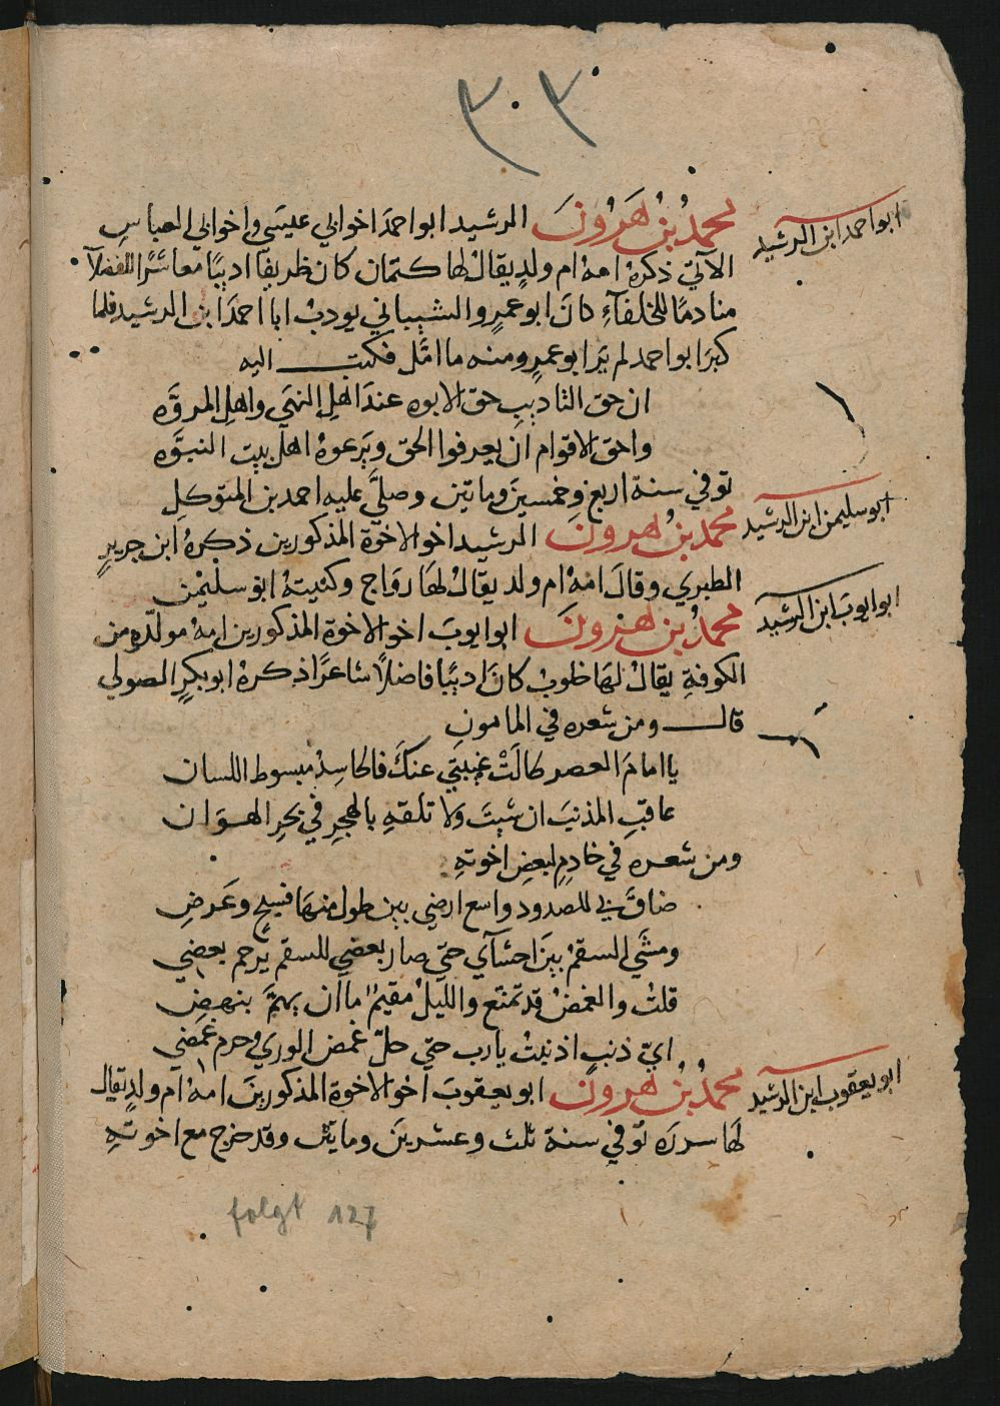 ٣٠٣
ابو احمد ابن الرشيد
محمد بن هَرُونَ الرشيد ابو احمدَ اخو ابي عيسَى واخو ابي العباسِ
الآتي ذكرهُ امهُ ام ولدٍ يقالُ لها كتمان كان ظريفًا اديبًا معاشرًا للفضلآ
منادمًا للخلفآءِ كانَ ابو عمرٍو الشيباني يودبُ ابا احمدَ ابن الرشيد فلما
كبرَ ابو احمد لم يَرَ ابو عمرٍو منه ما امَّل فكتب اليه
ان حق التاديبِ حق الابوه عندَ اهلِ النهَى واهلِ المروَّه
واحق الاقوام ان يعرفوا الحق ويَرعوهُ اهلُ بيت النبوَّه
توفي سنة اربع وخمسينَ وماتين وصلَّى عليه احمد بن المتوكلِ
ابو سليمن ابن الرشيد
محمدُ بنُ هرونَ الرشيد اخو الاخوة المذكورين ذكرهُ ابن جريرٍ
الطبري وقالَ امهُ ام ولد يقالُ لهَا رَوَاح وكنيتهُ ابو سليمٰن
ابو ايوبَ ابن الرشيد
محمدُ بن هٰرونَ ابو ايوبَ اخو الاخوة المذكورين امهُ مولّده من
الكوفةِ يقالُ لهَا خلوبُ كانَ اديبًا فاضلاً شاعرًا ذكرهُ ابو بكرٍ الصولي
قال ومن شعره في المامونِ
يا امامَ العصر طالَتْ غيبتي عنكَ فالحاسِدُ مبسوط اللسان
عاقبِ المذنبَ ان شيتَ ولا تلقهِ بالهجرِ في بحرِ الهوَان
ومن شعره في خادِمٍ لبعضِ اخوتهِ
ضاقَ بي للصدود واسع ارضي بين طول منهَا فسيحٍ وعَرضِ
ومشَي السقمُ بينَ احشآي حتي صار بعضي للسقم يرحم بعضي
قلتُ والغمضُ قد تمنع والليلُ مقيمٌ ما ان يهمَّ بنهضِ
ايّ ذنبٍ اذنبتُ يا رب حتي حلّ غمض الورى وحرم غمضي
ابو يعقوب ابن الرشيد
محمدُ بنُ هرونَ ابو يعقوبَ اخو الاخوة المذكورينَ امهُ ام ولدٍ يقال
لهَا سدرَه توفي سنة ثلث وعشرينَ وماتين وقد خرج مع اخوتهِ
folgt 127